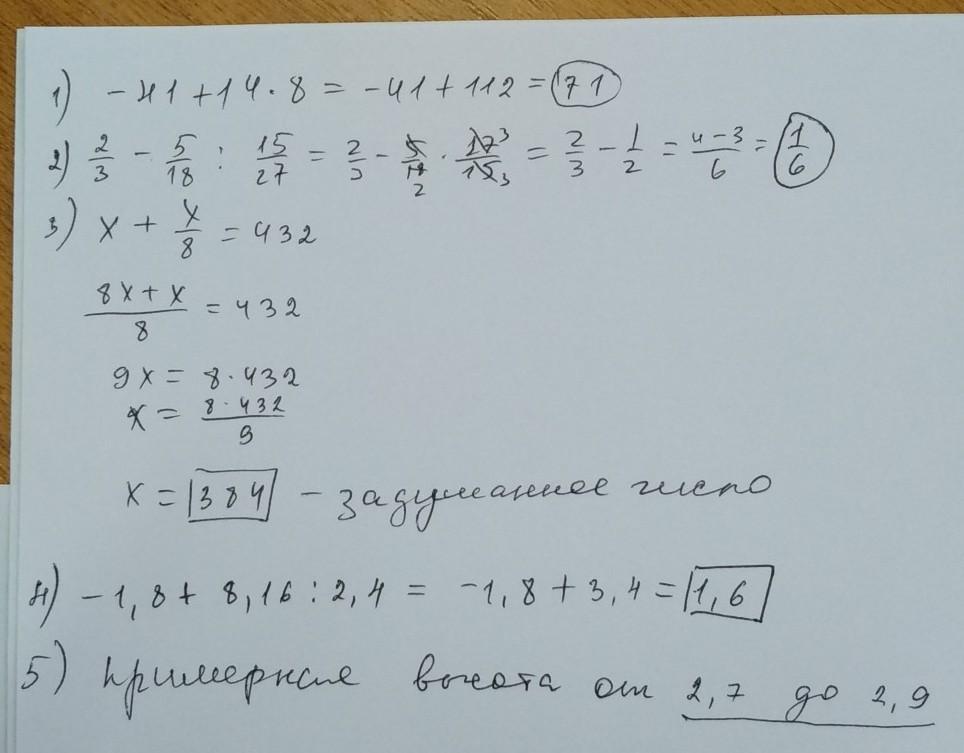 1) -41+14·8 = -41+112 = 71
2) 2/3 - 5/18 : 15/27 = 2/3 - 5/18 2 · 27 3/15 3 = 2/3 - 1/2 = 4-3/6 = 1/6
3) x + x/8 = 432
8x+x/8 = 432
9x = 8·432
x = 8·432/9
x = 384 - задуманное число
4) -1,8 + 8,16 : 2,4 = -1,8 + 3,4 = 1,6
5) примерная высота от 2,7 до 2,9